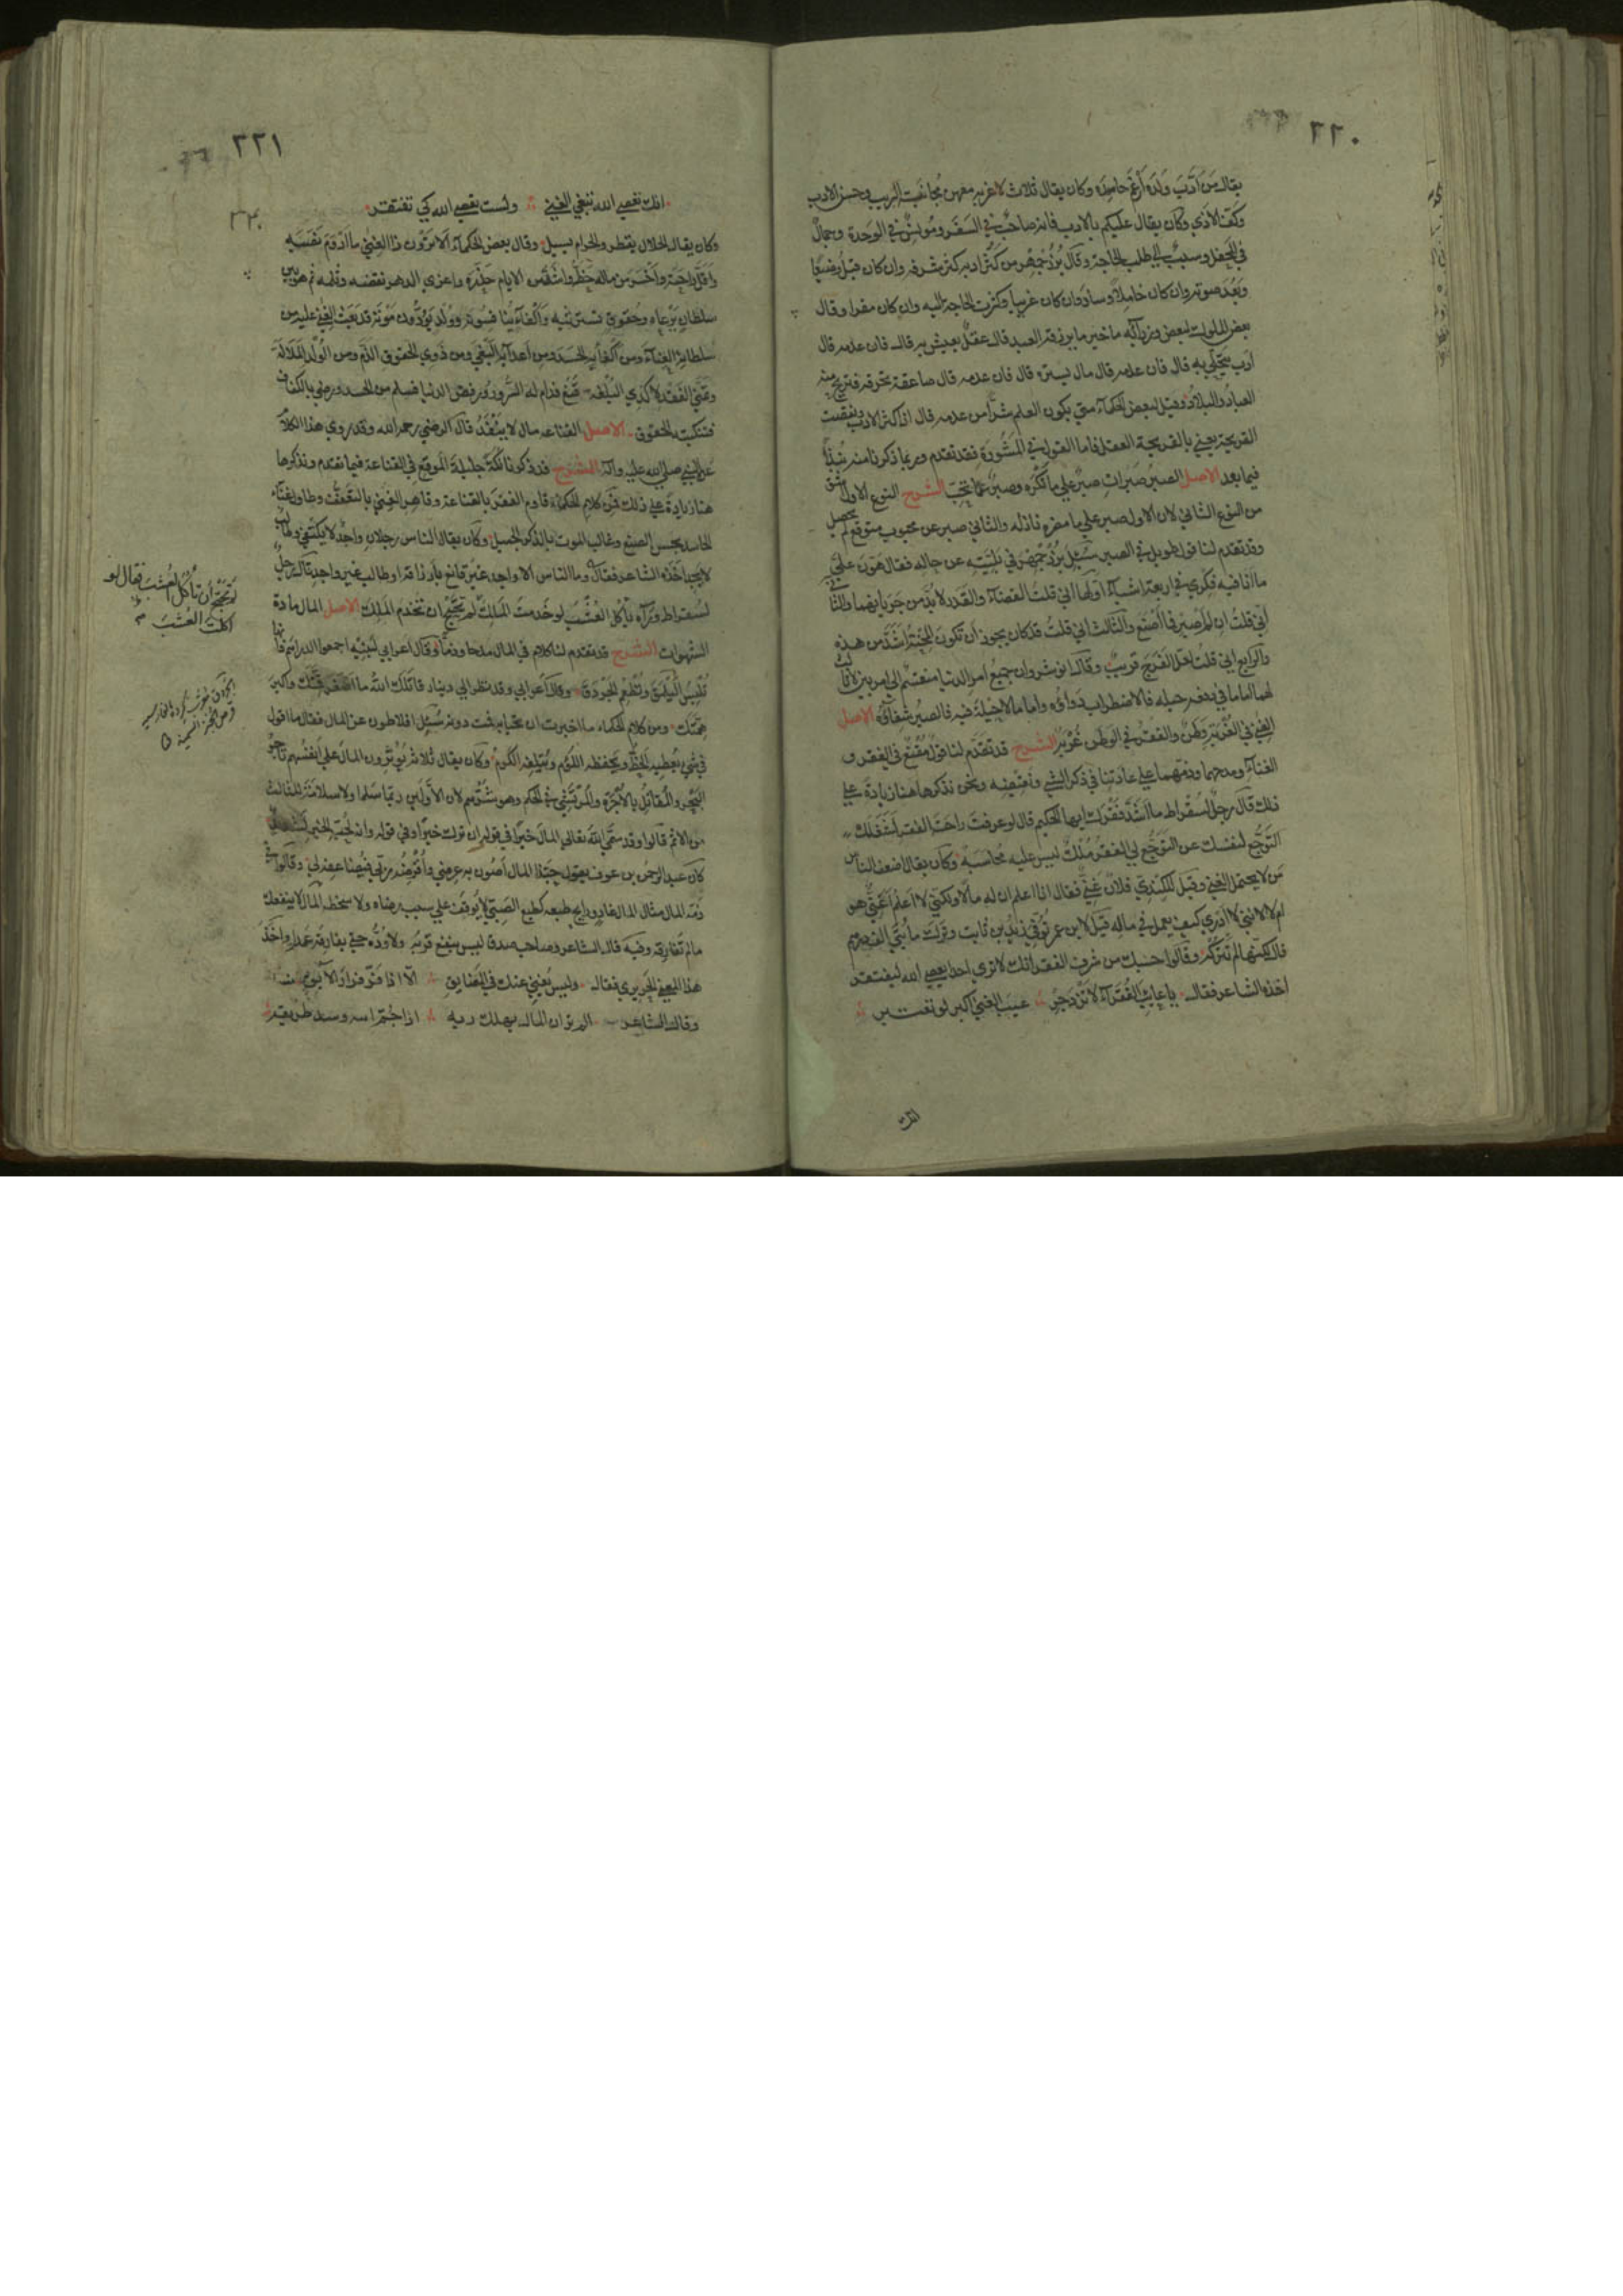 ٢٢٠
يقال من أدّب ولده أرغم حاسده وكان يقال ثلاث لا غربه معهن مجانبة الريب وحسن الادب
وكفّ الاذي وكان يقال عليكم بالادب فانه صاحب في السفر ومونس في الوحدة وجمال
في المحفل وسبب الي طلب الحاجة وقال بزرجمهر من كثر ادبه كثر شرفه وان كان قبل وضيعا
وبعد صوته وان كان خاملا وساد وان كان غريبا وكثرت الحاجة اليه وان كان مقترا وقال
بعض الملوك لبعض وزرآئه ما خير ما يرزقه العبد قال عقل يعيش به قال فان عدمه قال
أدب يتحلّي به قال فان عدمه قال مال يستره قال فان عدمه قال صاعقة تحرقه فتريح منه
العباد والبلاد وقيل لبعض الحكمآء متي يكون العلم شرا من عدمه قال اذا كثر الادب ونقصت
القريحة يعني بالقريحة العقل فاما القول في المشورة فقد تقدم وربما ذكرنا منه نبذا
فيما بعد الاصل الصبر صبران صبر علي ما تكره وصبر عما تحبّ الشرح النوع الاول اشق
من النوع الثاني لان الاول صبر علي ما مضرة نازلة والثاني صبر عن محبوب متوقع لم يحصل
وقد تقدم لنا قول طويل في الصبر سئل بزرجمهر في بليته عن حاله فقال هون علي
ما أنا فيه فكري في اربعة اشيآء اولها اني قلت القضآء والقدر لا بد من جريانهما والثاني
أني قلت ان لم أصبر فما أصنع والثالث اني قلت قد كان يجوز أن تكون المحنة اشد من هذه
والرابع اني قلت لعل الفرج قريب وقال انوشروان جميع أمر الدنيا منقسم الي امرين لا ثالث
لهما اما ما في دفعه حيلة فالاضطراب دوآؤه واما ما لا حيلة فيه فالصبر شفآؤه الاصل
الغني في الغربة وطن والفقر في الوطن غربة الشرح قد تقدّم لنا قول مقنع في الفقر و
الغنآء ومدحهما وذمّهما علي عادتنا في ذكر الشي ونقيضه ونحن نذكر هاهنا زيادة علي
ذلك قال رجل لسقراط ما اشدّ فقرك ايها الحكيم قال لو عرفت راحة الفقر لشغلك
التوجّع لنفسك عن التوجّع لي الفقر ملك ليس عليه محاسبة وكان يقال اضعف الناس
من لا يحتمل الغني وقيل للكندي فلان غني فقال انا اعلم ان له مالا ولكني لا اعلم أغني هو
ام لا لانني لا ادري كيف يعمل في ماله قيل لابن عمر توفي زيد بن ثابت وترك مائتي الف درهم
قال لكنها لم تتركه وقالوا حسبك من شرف الفقر انك لا تري احدا يعصي الله ليفتقر
اخذه الشاعر فقال يا عائب الفقرآء لا تزدجر عيب الغني اكبر لو تعتبر
انك
٢٢١
٣٢٠
انك تعصي الله تبغي الغني ولست تعصي الله كي تفتقر
وكان يقال الحلال يقطر والحرام يسيل وقال بعض الحكمآء ألا ترون ذا الغني ما ادوم نصبه
وأقلّ راحته وأخسّ من ماله حظه واشدّ من الايام حذره واغري الدهر بنقصه وثلمه ثم هو بين
سلطان يرعاه وحقوق تسترثيه وأكفآء ينافسونه وولد يودّون موته قد بعث الغني عليه من
سلطانه العنآء ومن أكفآئه الحسد ومن أعدآئه البغي ومن ذوي الحقوق الذّم ومن الولد الملالة
وتمني الفقد لا كذي البلغة قنع فدام له السرور ورفض الدنيا فسلم من الحسد ورضي بالكفاف
فتنكبته الحقوق الاصل القناعة مال لا ينفد قال الرضي رحمه الله وقد روي هذا الكلام
عن النبي صلي الله عليه وآله الشرح قد ذكرنا نكتا جليلة الموقع في القناعة فيما تقدم ونذكر ها
هنا زيادة علي ذلك فمن كلام الحكمآء قاوم الفقر بالقناعة وقاهر الغني بالتعفف وطاول عنآء
الحاسد بحسن الصنع وغالب الموت بالذكر الجميل وكان يقال الناس رجلان واجد لا يكتفي وطالب
لا يجد اخذه الشاعر فقال وما الناس الا واجد غير قانع بارزاقه او طالب غير واجد قال رجل
لسقراط ورآه يأكل العشب لو خدمت الملك لم تحتج أن تخدم الملك الاصل المال مادة
الشهوات الشرح قد تقدم لنا كلام في المال مدحا وذمّا وقال اعرابي لبنيه اجمعوا الدراهم فانها
تلبس اليلمق وتطعم الجردق وقال أعرابي وقد نظر الي دينار قاتلك الله ما اصغر قمّتك واكبر
همّتك ومن كلام الحكمآء ما اخترت ان تحيا به فمت دونه سئل افلاطون عن المال فقال ما اقول
في شي يعطيه الحظّ ويحفظه اللؤم ويتلفه الكرم وكان يقال ثلاثة يؤثرون المال علي أنفسهم تاجر
البحر والمقاتل بالاجرة والمرتشي في الحكم وهو شرّهم لان الأولين ربما سلما ولا سلامة للثالث
من الاثم قالوا وقد سمّي الله تعالي المال خيرا في قوله ان ترك خيرا وفي قوله وانه لحب الخير لشديد
كان عبد الرحمن بن عوف يقول حبّذا المال أصون به عرضي وأقرضه ربي فيضاعفه لي وقالوا في
ذم المال المال مثل المال غاد ورائح طبعه كطبع الصبي لا يوقف علي سبب رضاه ولا سخطه المال لا ينفعك
ما لم تفارقه وفيه قال الشاعر وصاحب صدق ليس ينفع قربه ولا ودّه حتي يفارقه عمدا واخذ
هذا المعني الحريري فقال وليس يغني عنك في المضايق الا اذا فرّ فرار الآبق
وقال الشاعر الم تر ان المال يهلك ربه اذا جمّ آتيه وسدّ طريقه
لم تحتج أن تأكل العشب فقال لو
اكلت العشب